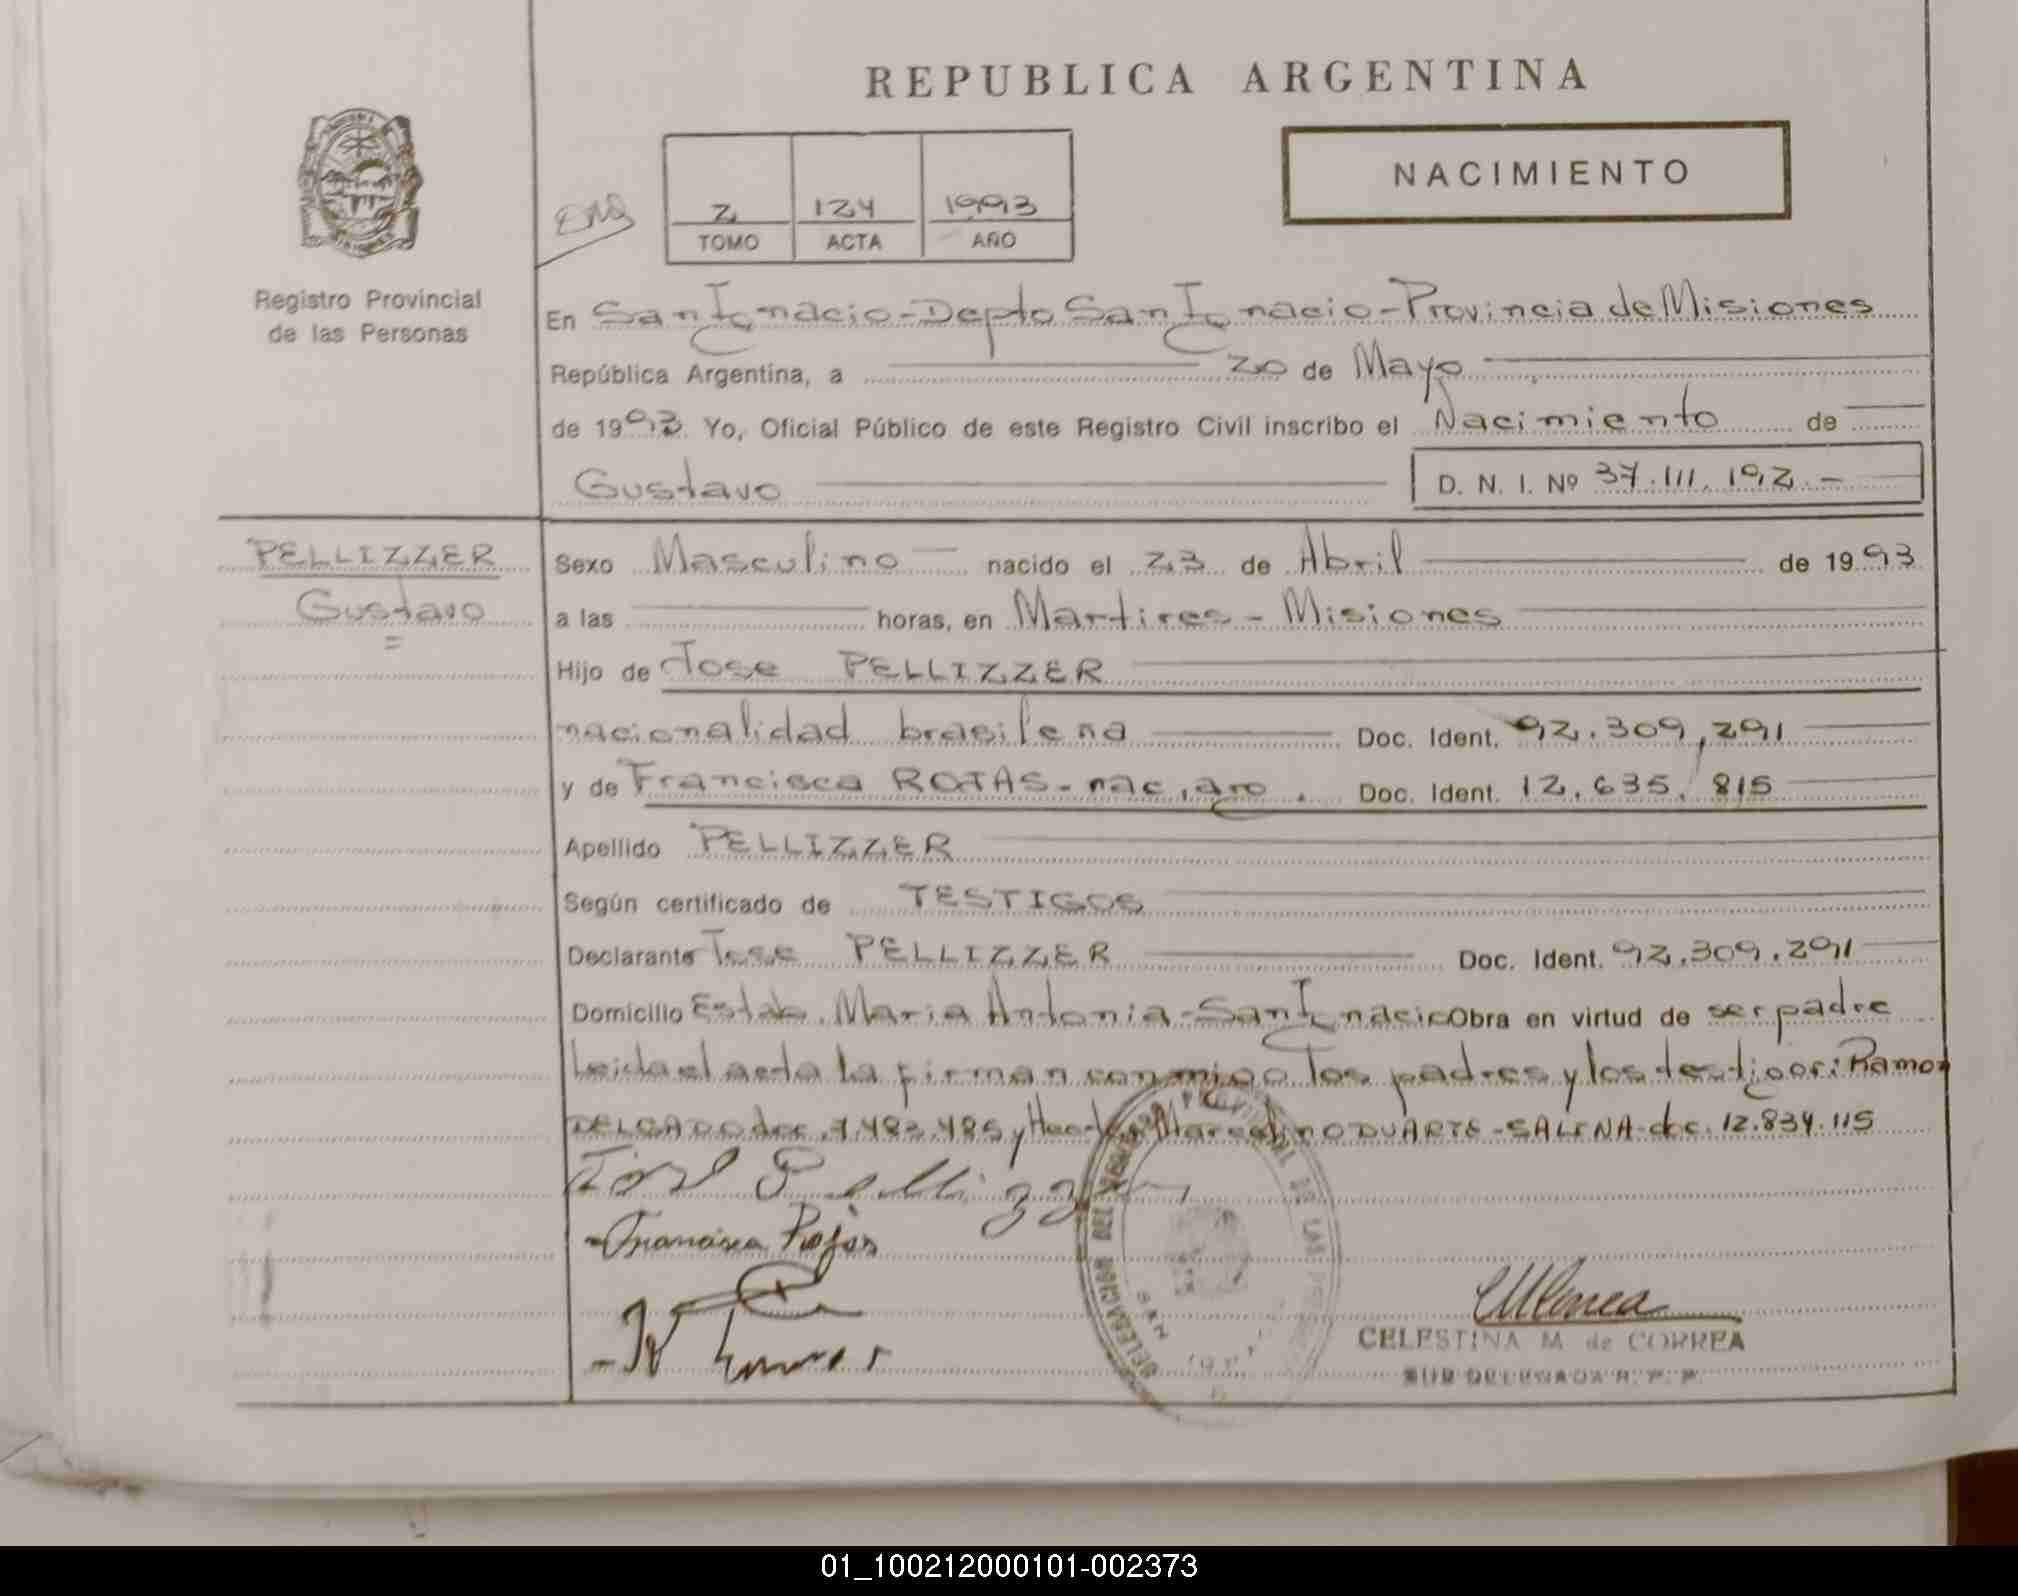 REPUBLICA ARGENTINA
NACIMIENTO
2 124 1993
TOMO ACTA AÑO
Registro Provincial
de las Personas
En San Ignacio-Depto San Ignacio-Provincia de Misiones
República Argentina, a 20 de Mayo
de 1993. Yo, Oficial Público de este Registro Civil inscribo el Nacimiento de
Gustavo D. N. I. Nº 37.111.192.-
PELLIZZER
Gustavo
=
Sexo Masculino nacido el 23 de Abril de 1993
a las horas, en Martires - Misiones
Hijo de Jose PELLIZZER
nacionalidad brasileña Doc. Ident. 92.309,291
y de Francisca ROJAS-nac, arg. Doc. Ident. 12.635.815
Apellido PELLIZZER
Según certificado de TESTIGOS
Declarante Jose PELLIZZER Doc. Ident. 92.309.291
Domicilio Estab. Maria Antonia-San Ignacio Obra en virtud de ser padre
Leida el acta la firman conmigo los padres y los testigos: Ramon
DELGADO doc. 7.483.485 y Marcelino DUARTE - doc. 12.834.115
Jose Pellizzer
-Francisca Rojas
DELEGACION DEL REGISTRO PROVINCIAL DE LAS
CELESTINA M de CORREA
SUB DELEGADA R. P. P.
01_100212000101-002373